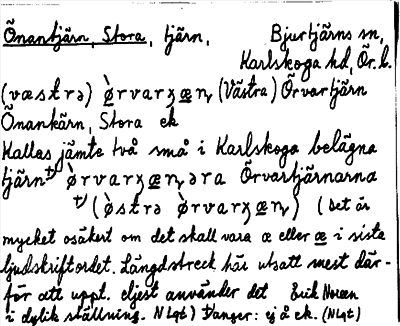 Önantjärn, Stora, tjärn, Bjurtjärns sn,
Karlskoga hd, Ör. l.
(væstrə) ø̀rvarʒæ̲n, (Västra) Örvartjärn
Önankärn, Stora ek
Kallas jämte två små i Karlskoga belägna
tjärn 1) ø̀rvarʒæ̲nəra Örvartjärnarna
1) (østrə ø̀rvarʒæ̲n) (det är
mycket osäkert om det skall vara æ eller æ̲ i sista
ljudskriftordet. Längdstreck här utsatt mest där-
för att uppt. eljest använder det Erik Noreen
i dylik ställning. NLgt) Tanger: ej å ek. (NLgt)